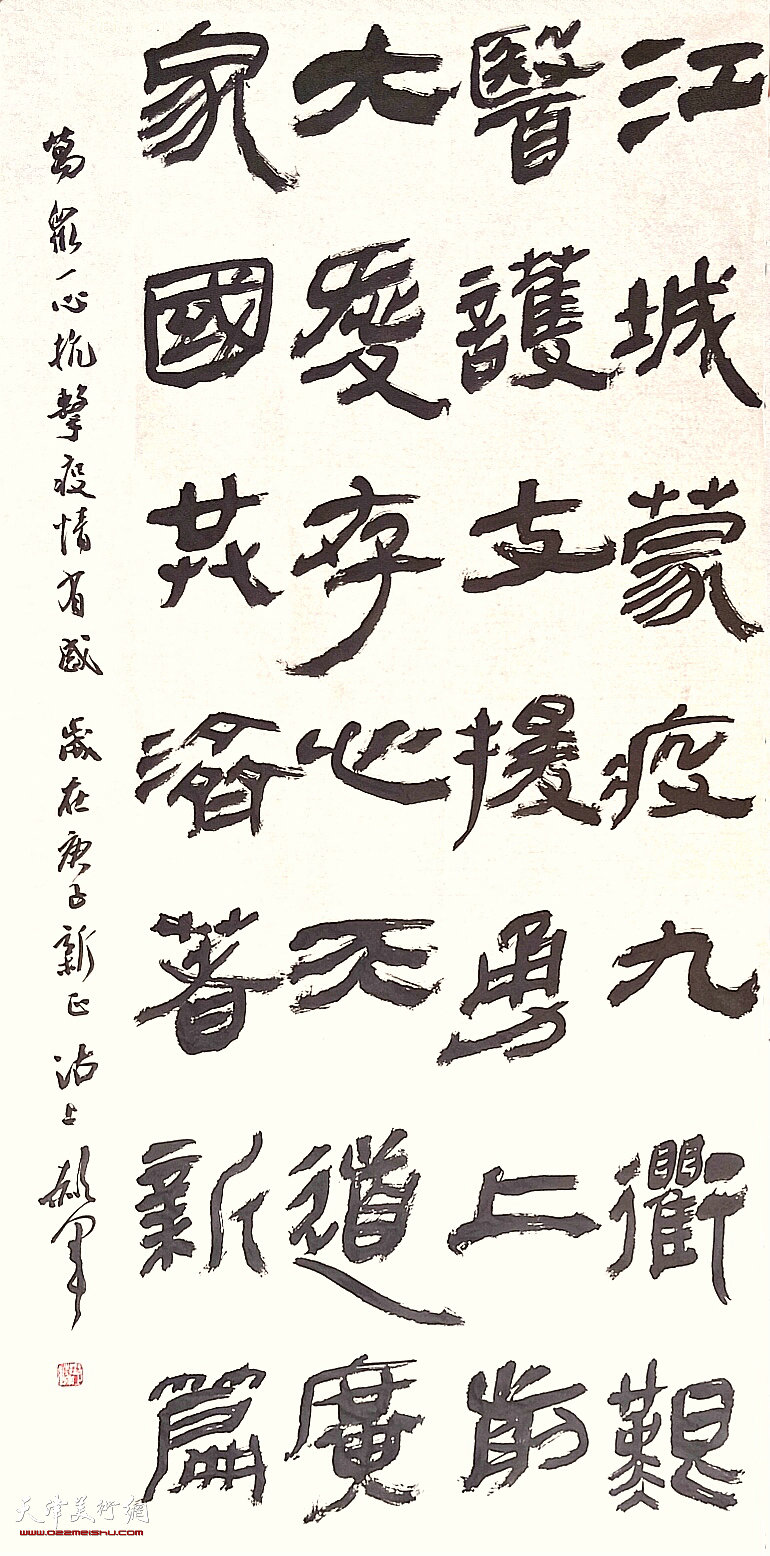 江城蒙疫九衢艱
醫護支援勇上前
大愛存心天道廣
家國共濟著新篇
萬衆一心抗擊疫情有感 歲在庚子新正 沽上
天津美術網
www.022meishu.com